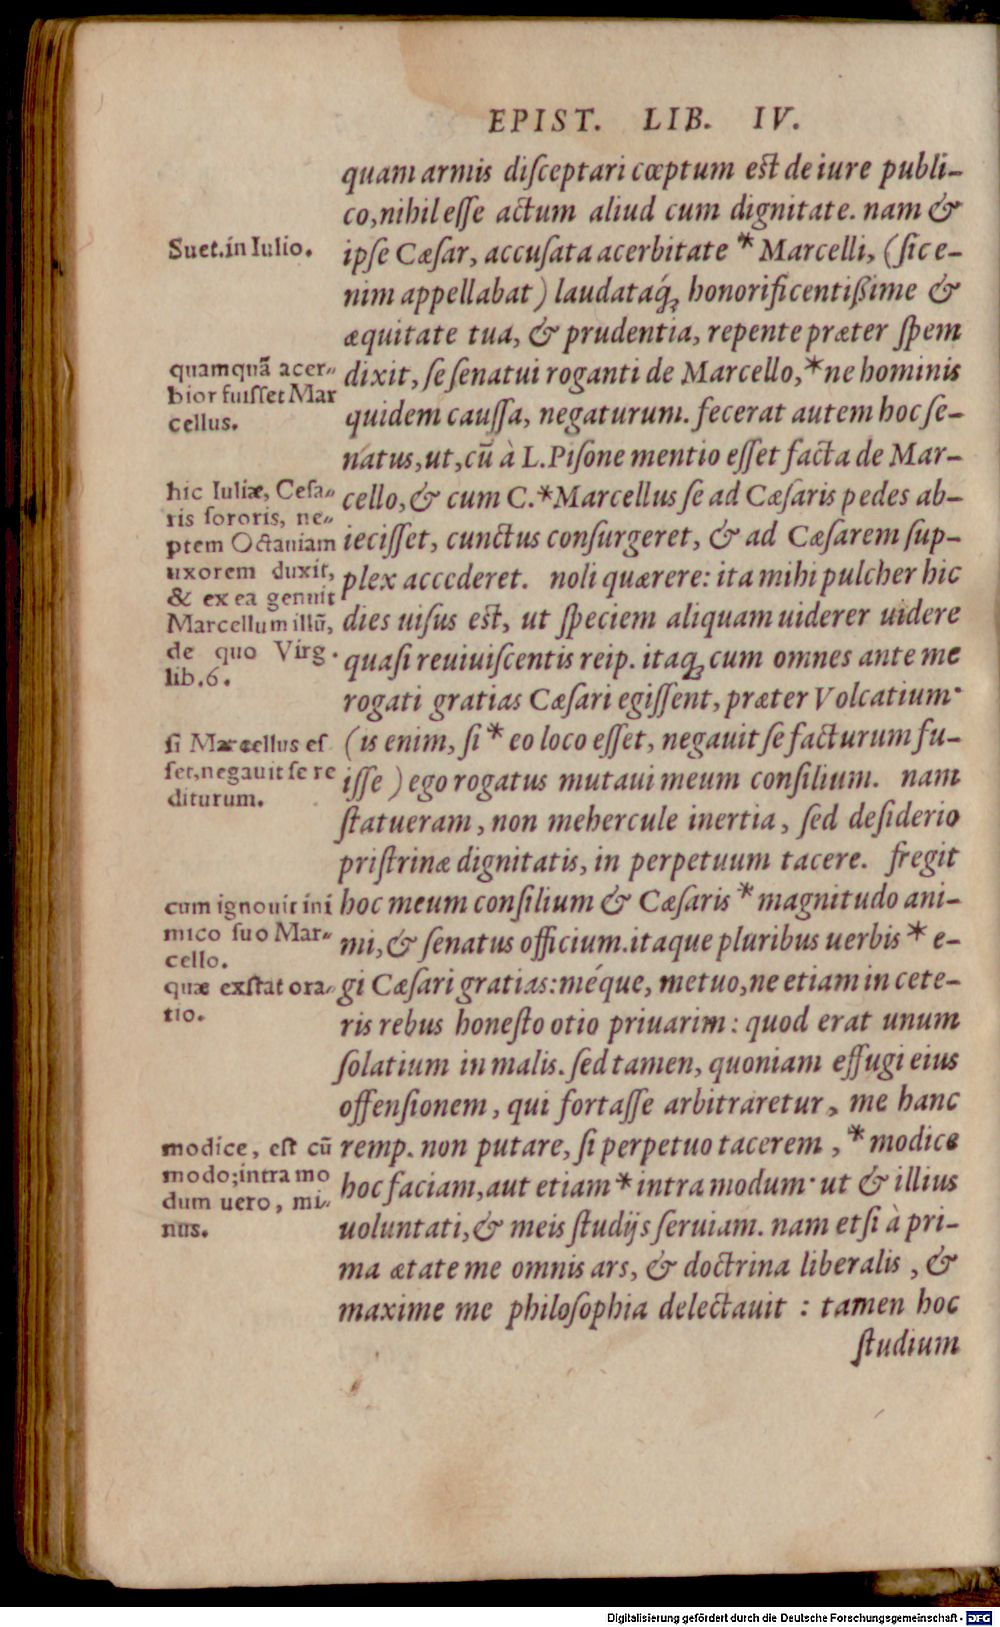 EPIST. LIB. IV.
quam armis diſceptari cœptum est de iure publi-
co, nihil eſſe actum aliud cum dignitate. nam &
ipſe Cæſar, accuſata acerbitate * Marcelli, (ſic e-
nim appellabat) laudataq́; honorificentißime &
æquitate tua, & prudentia, repente præter ſpem
dixit, ſe ſenatui roganti de Marcello, * ne hominis
quidem cauſſa, negaturum. fecerat autem hoc ſe-
natus, ut, cū à L. Piſone mentio eſſet facta de Mar-
cello, & cum C. * Marcellus ſe ad Cæſaris pedes ab-
ieciſſet, cunctus conſurgeret, & ad Cæſarem ſup-
plex accederet. noli quærere: ita mihi pulcher hic
dies uiſus est, ut ſpeciem aliquam uiderer uidere
quaſi reuiuiſcentis reip. itaq; cum omnes ante me
rogati gratias Cæſari egiſſent, præter Volcatium·
(is enim, ſi * eo loco eſſet, negauit ſe facturum fu-
iſſe) ego rogatus mutaui meum conſilium. nam
ſtatueram, non mehercule inertia, ſed deſiderio
priſtrinæ dignitatis, in perpetuum tacere. fregit
hoc meum conſilium & Cæſaris * magnitudo ani-
mi, & ſenatus officium. itaque pluribus uerbis * e-
gi Cæſari gratias: méque, metuo, ne etiam in cete-
ris rebus honeſto otio priuarim: quod erat unum
ſolatium in malis. ſed tamen, quoniam effugi eius
offenſionem, qui fortaſſe arbitraretur, me hanc
remp. non putare, ſi perpetuo tacerem, * modice
hoc faciam, aut etiam * intra modum· ut & illius
uoluntati, & meis ſtudijs ſeruiam. nam etſi à pri-
ma ætate me omnis ars, & doctrina liberalis, &
maxime me philoſophia delectauit: tamen hoc
ſtudium
Suet. in Iulio.
quamquā acer-
bior fuiſſet Mar
cellus.
hic Iuliæ, Ceſa-
ris ſororis, ne-
ptem Octauiam
uxorem duxit,
& ex ea genuit
Marcellum illū,
de quo Virg.
lib. 6.
ſi Marcellus eſ
ſet, negauit ſe re
diturum.
cum ignouit ini
mico ſuo Mar-
cello.
quæ exſtat ora-
tio.
modice, eſt cū
modo; intra mo
dum uero, mi-
nus.
Digitalisierung gefördert durch die Deutsche Forschungsgemeinschaft - DFG